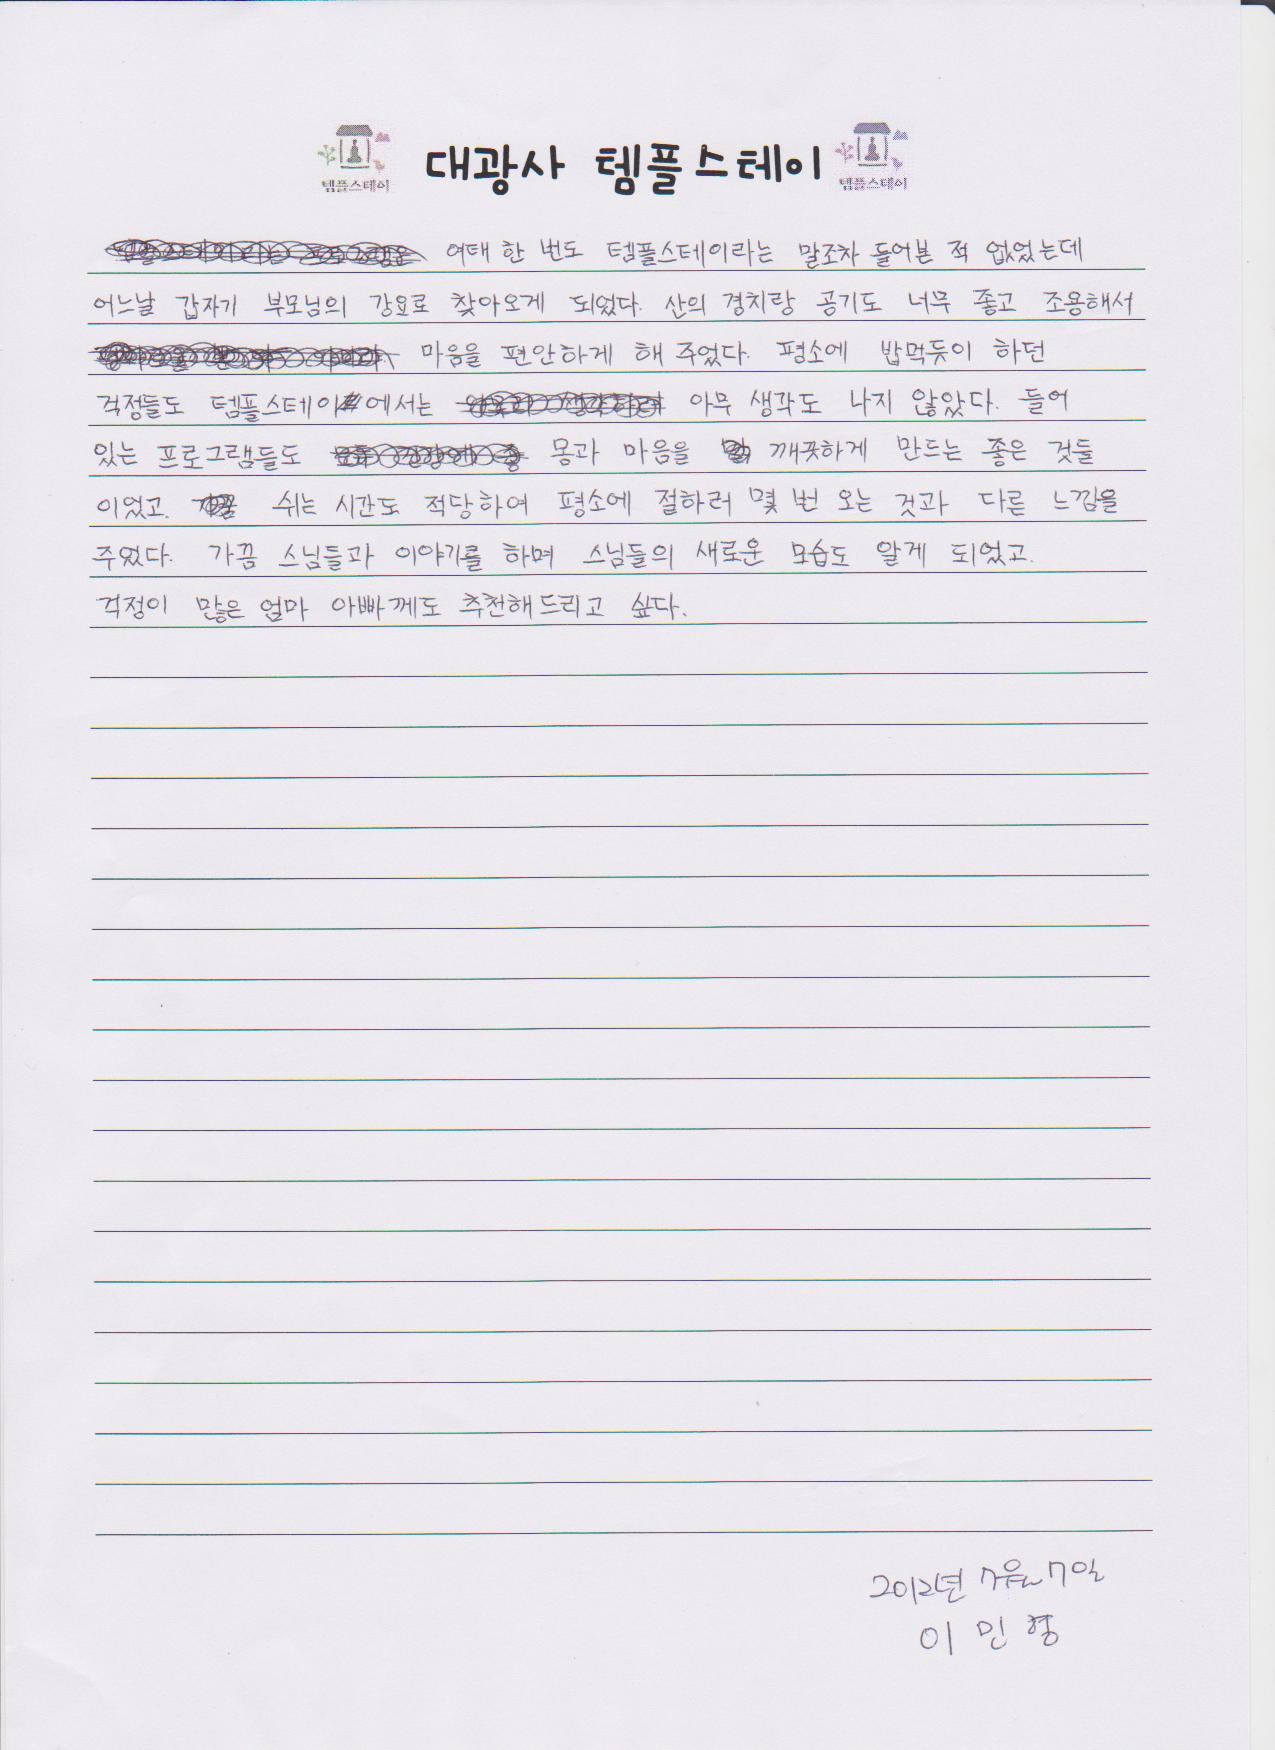 템플스테이 대광사 템플스테이 템플스테이
여태 한 번도 템플스테이라는 말조차 들어본 적 없었는데
어느날 갑자기 부모님의 강요로 찾아오게 되었다. 산의 경치랑 공기도 너무 좋고 조용해서
마음을 편안하게 해 주었다. 평소에 밥먹듯이 하던
걱정들도 템플스테이에서는 아무 생각도 나지 않았다. 들어
있는 프로그램들도 몸과 마음을 깨끗하게 만드는 좋은 것들
이었고. 쉬는 시간도 적당하여 평소에 절하러 몇 번 오는 것과 다른 느낌을
주었다. 가끔 스님들과 이야기를 하며 스님들의 새로운 모습도 알게 되었고.
걱정이 많은 엄마 아빠께도 추천해드리고 싶다.
2012년 7월 7일
이민형